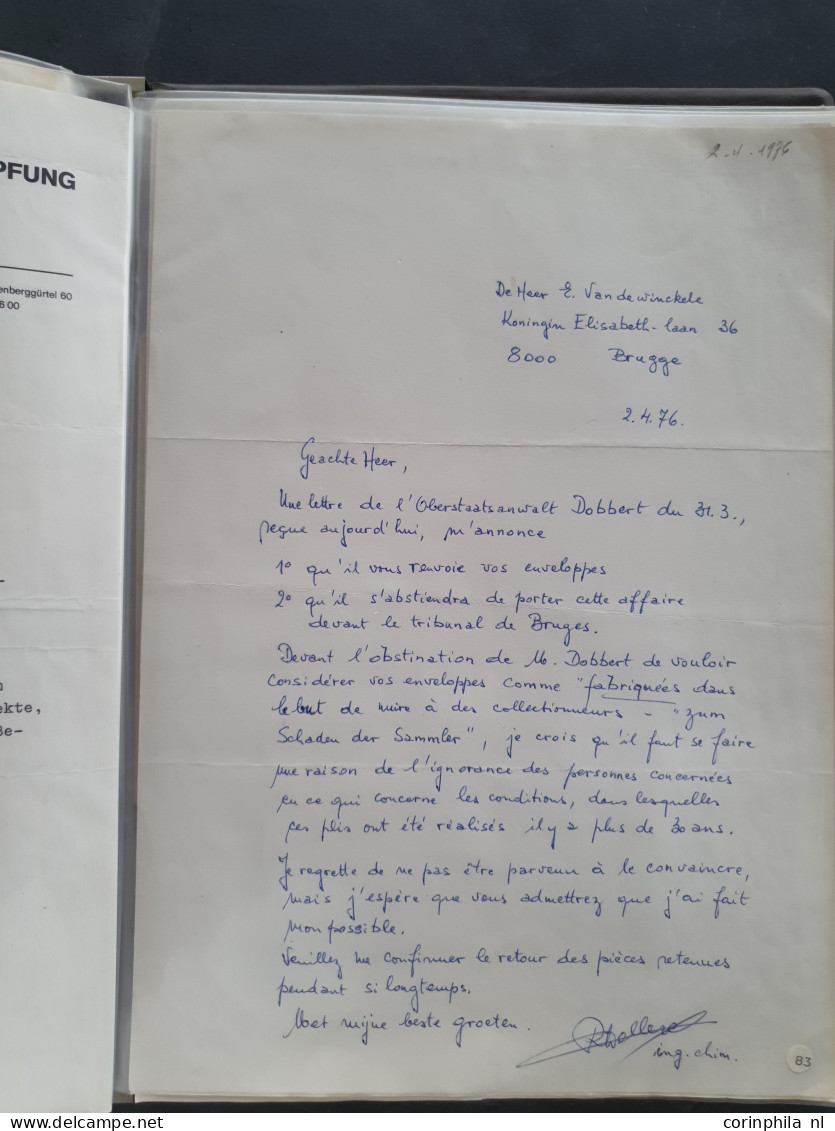 PFUNG
enberggürtel 60
6 00
ekte,
Be-
2-4-1976
De Heer E. Vandewinckele
Koningin Elisabeth-laan 36
8000 Brugge
2.4.76.
Geachte Heer,
Une lettre de l'Oberstaatsanwalt Dobbert du 31.3.,
reçue aujourd'hui, m'annonce
1° qu'il vous renvoie vos enveloppes
2° qu'il s'abstiendra de porter cette affaire
devant le tribunal de Bruges.
Devant l'obstination de M. Dobbert de vouloir
considérer vos enveloppes comme "fabriquées dans
le but de nuire à des collectionneurs - "zum
Schaden der Sammler", je crois qu'il faut se faire
une raison de l'ignorance des personnes concernées
en ce qui concerne les conditions, dans lesquelles
ces plis ont été réalisés il y a plus de 30 ans.
Je regrette de ne pas être parvenu à le convaincre,
mais j'espère que vous admettrez que j'ai fait
mon possible.
Veuillez me confirmer le retour des pièces retenues
pendant si longtemps.
Met mijne beste groeten.
ing. chim.
83
www.delcampe.net
corinphila nl